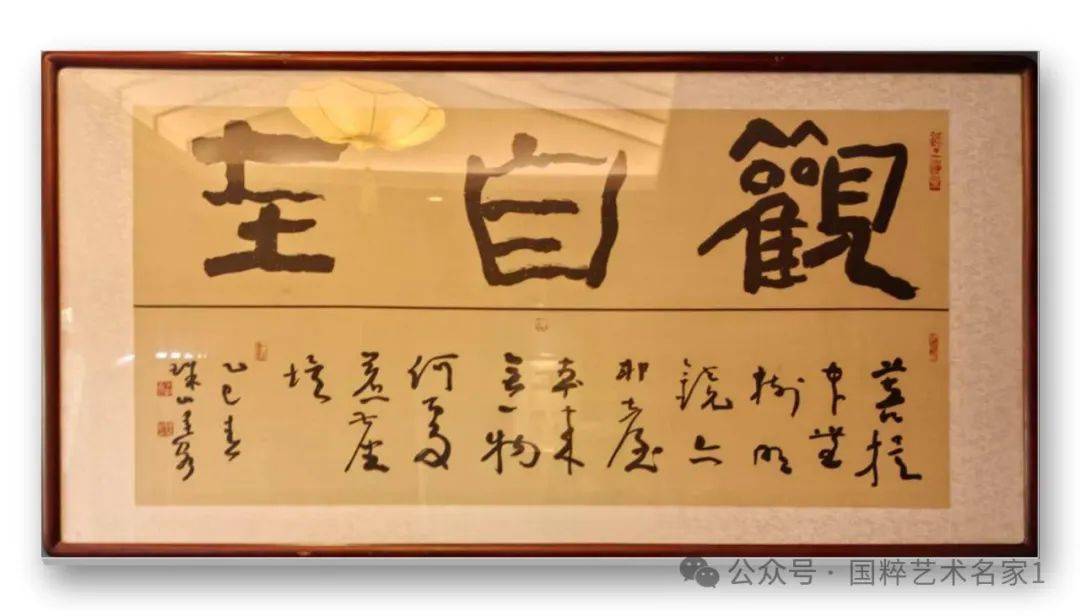 觀自在
菩提
本無
樹明
鏡亦
非臺
本来
無一物
何處
惹塵
埃
乙巳春
珠山
公众号 · 国粹艺术名家1